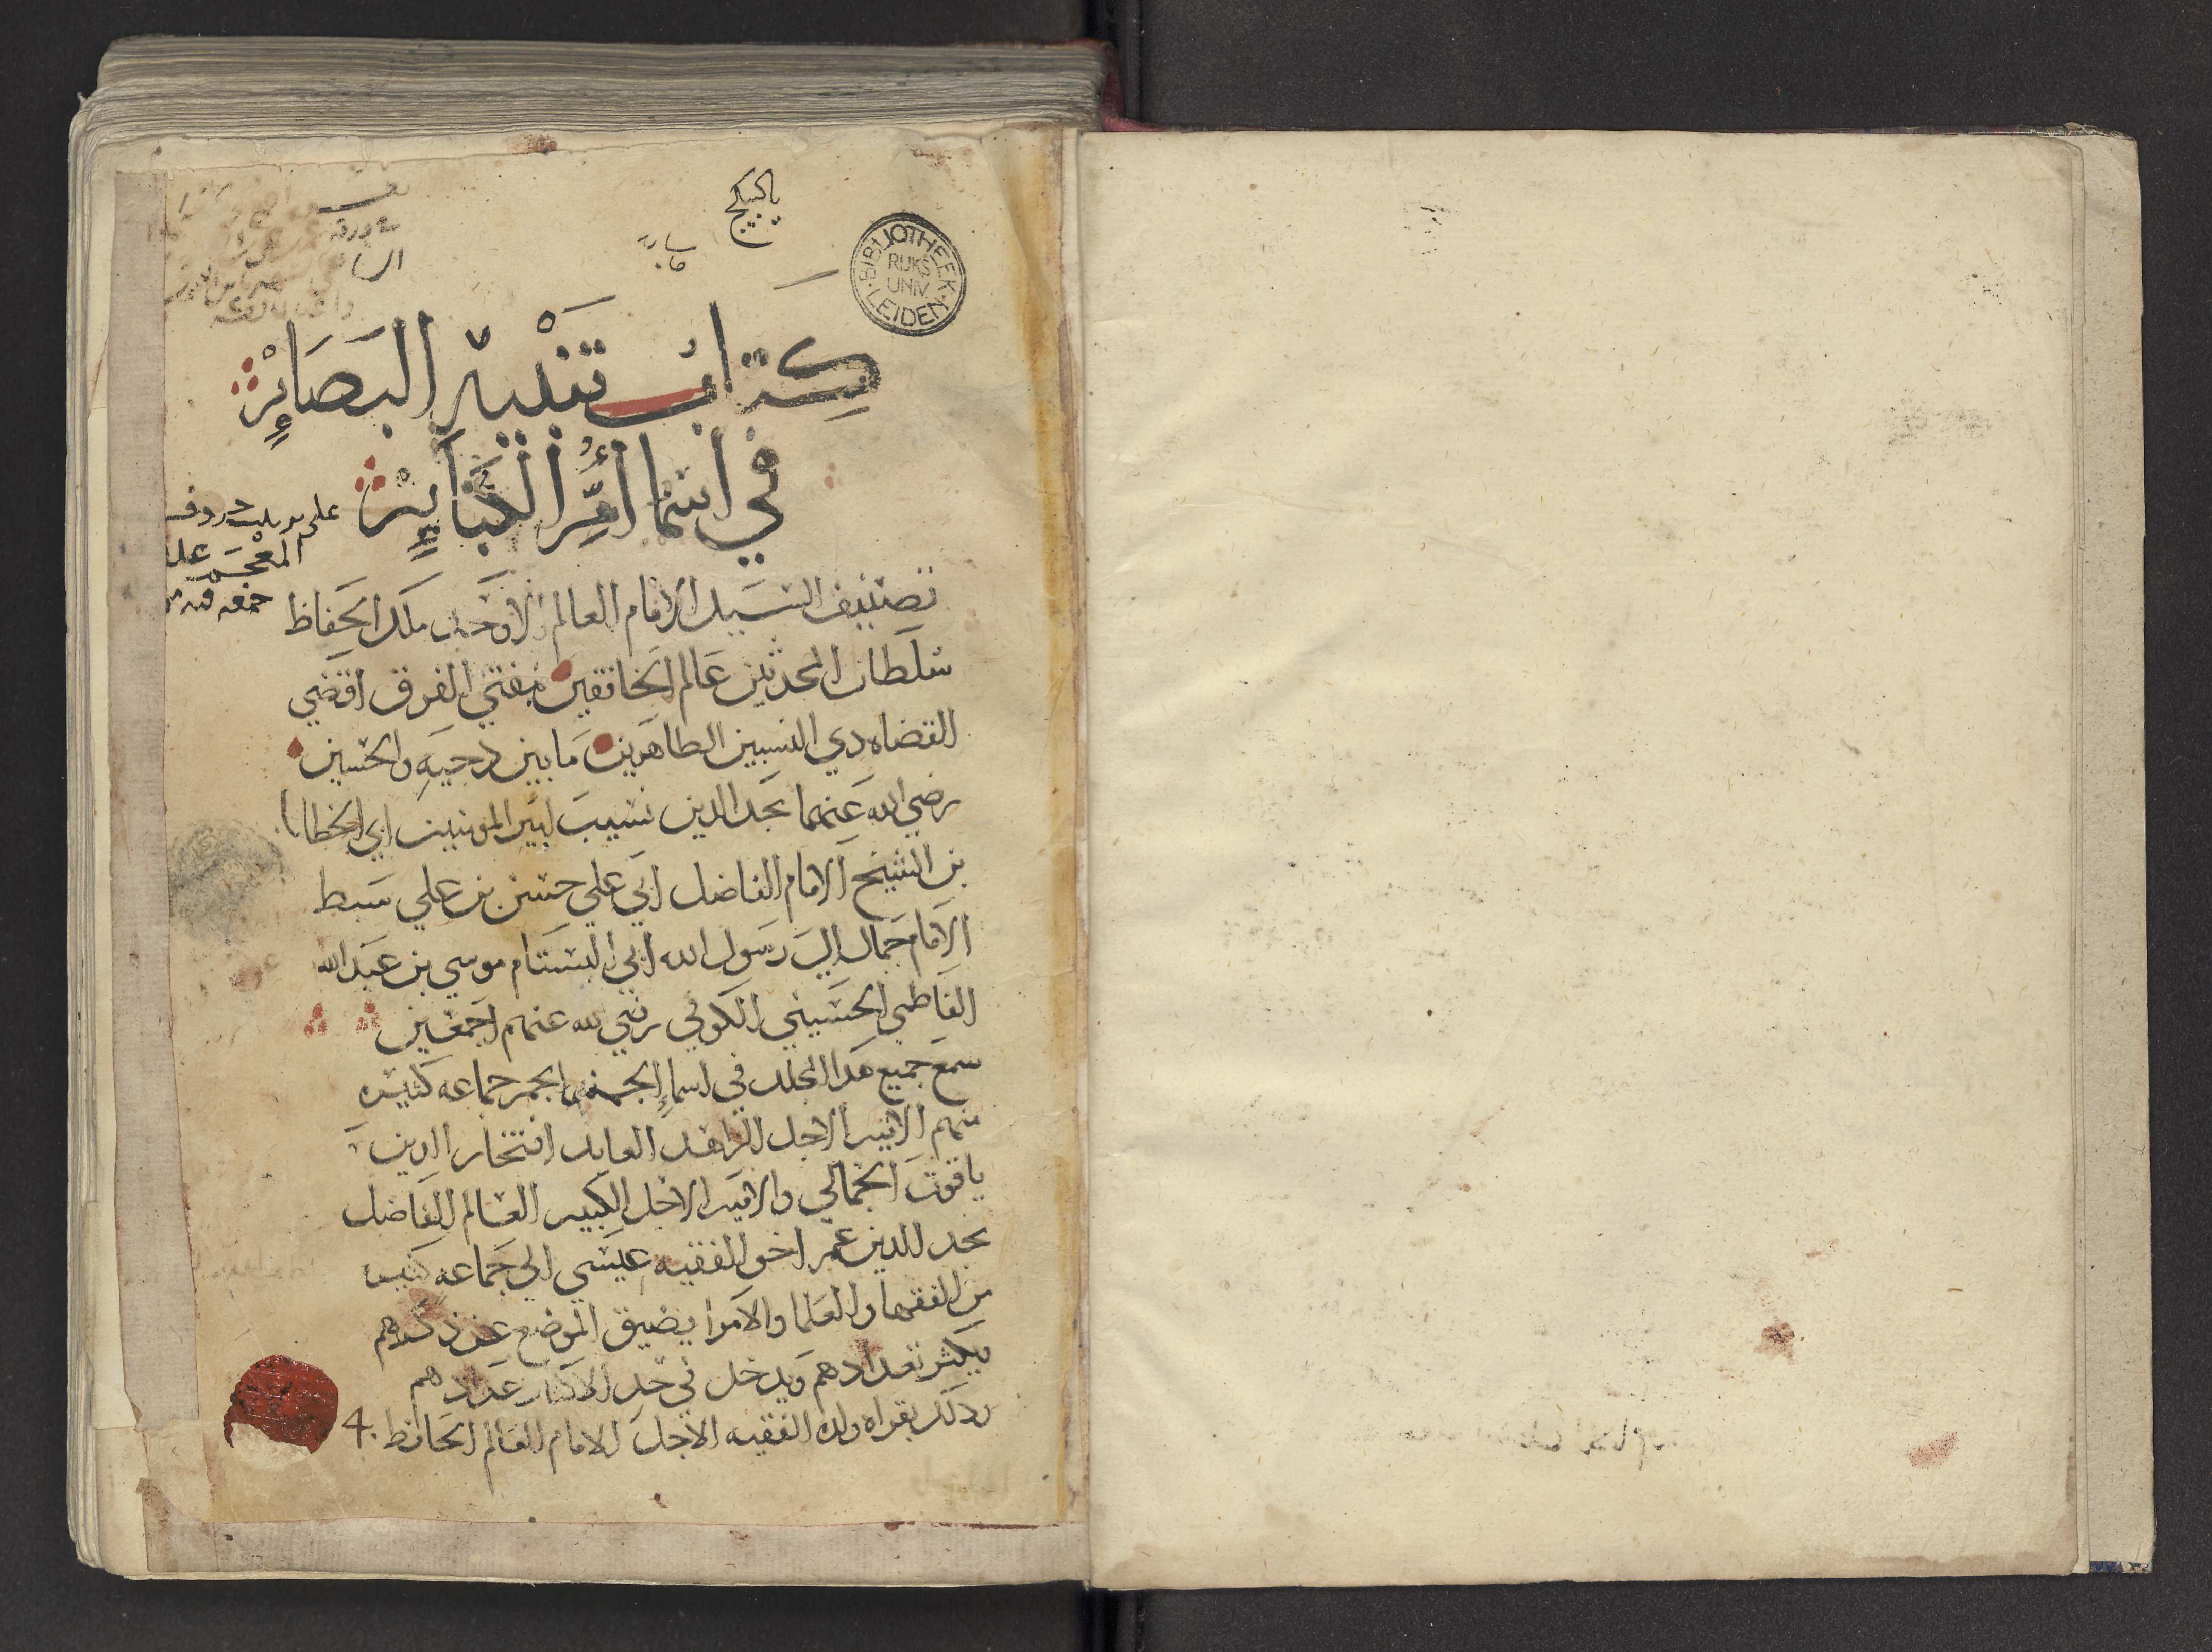 يا كبيكج
BIBLIOTHEEK
RIJKS
UNIV.
LEIDEN
كتاب تنبيه البصائر
في اسما أم الكبائر
على حروف
المعجم
تصنيف السيد الامام العالم الاوحد ملك الحفاظ
سلطان المحدثين عالم الخافقين مفتي الفرق اقضي
القضاه دي النسبين الطاهرين ما بين دحيه والحسين
رضي الله عنهما مجد الدين نسيب امير المومنين ابي الخطاب
بن الشيخ الامام الفاضل ابي علي حسن بن علي سبط
الامام جمال ال رسول الله ابي البسام موسي بن عبد الله
الفاطمي الحسيني الكوفي رضي الله عنهم اجمعين
سمع جميع هدا المجلد في اسما الخمر جماعه كثيره
منهم الامير الاجل الزاهد العابد افتخار الدين
ياقوت الجمالي والامير الاجل الكبير العالم الفاضل
مجد الدين عمر اخو الفقيه عيسي الي جماعه كثيره
من الفقها والعلما والامرا يضيق الموضع عن ذكرهم
ويكثر تعدادهم ويدخل في حد الاكثار عددهم
ودلك بقراه ولد الفقيه الاجل الامام العالم الحافظ